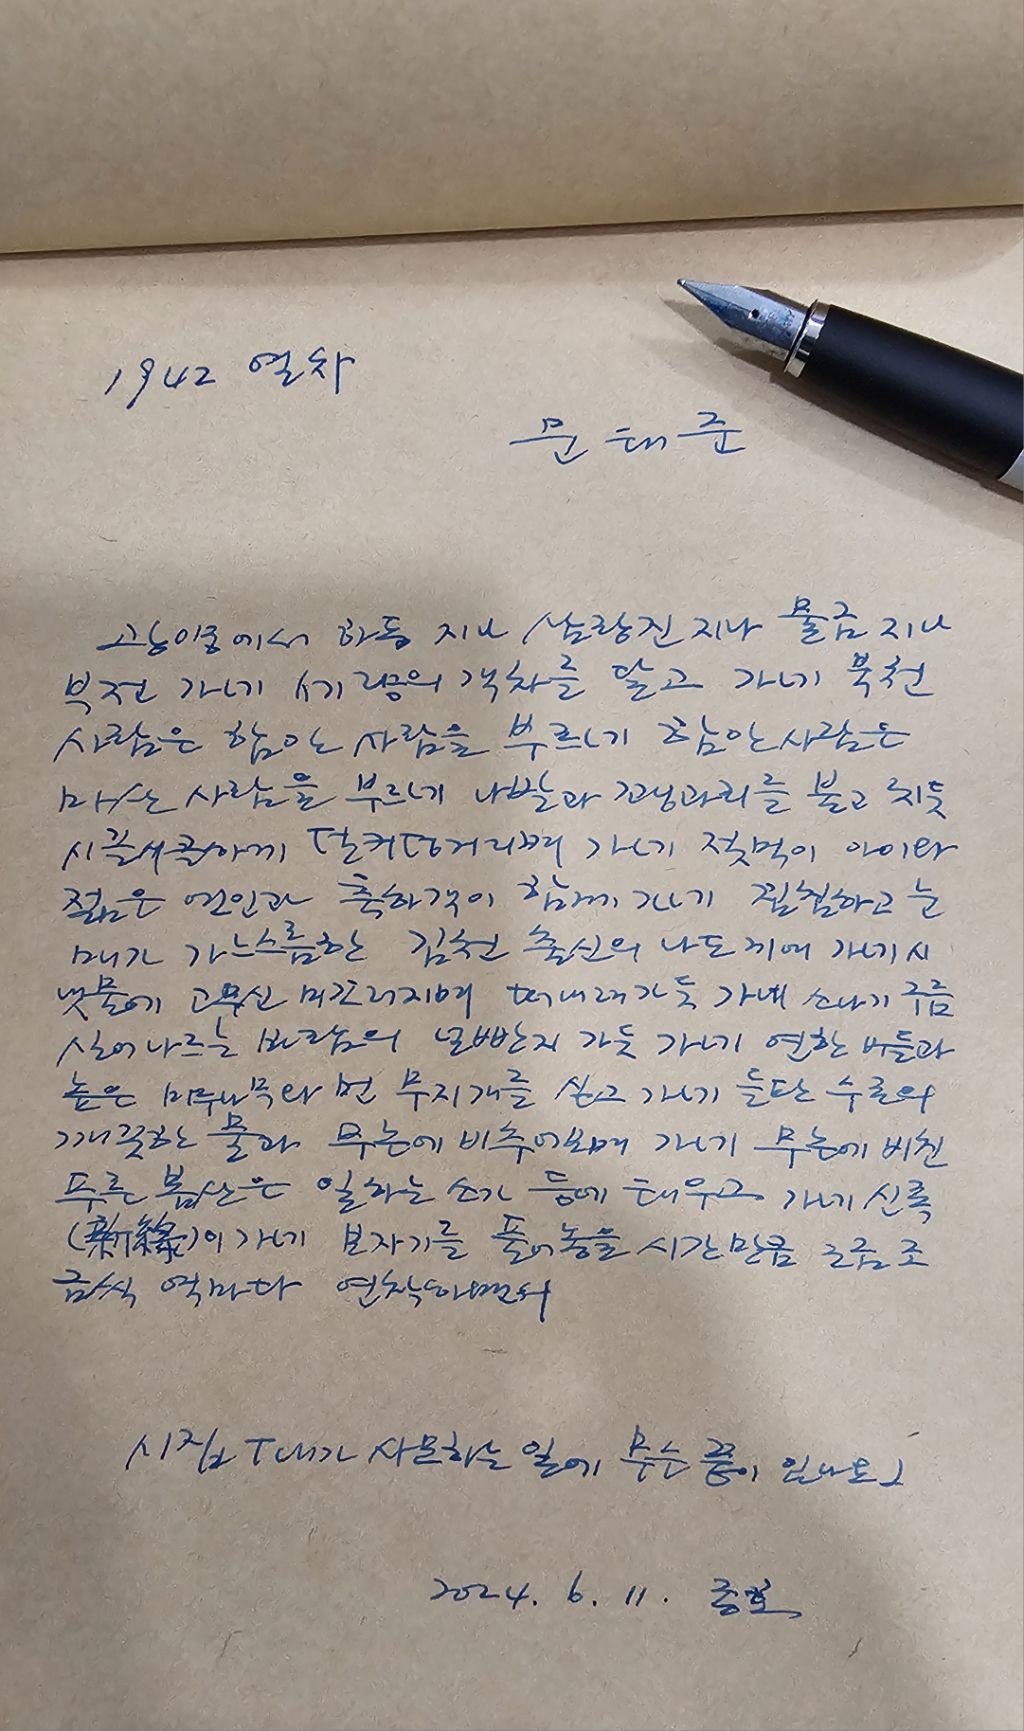 1942 열차
문태준
고향이룸에서 하동 지나 삼랑진 지나 물금 지나
부전 가네 세기 리을의 객차를 달고 가네 북천
사람은 함안 사람을 부르네 함안 사람은
마산 사람을 부르네 나발과 꽹과리를 불고 치듯
시끌시끌하게 덜커덩거리며 가네 젖먹이 아이와
젊은 연인과 축하객이 함께 가네 찜찜하고 눈
매가 가느스름한 김천 출신의 나도 끼여 가네 시
냇물에 고무신 미끄러지며 떠내려가듯 가네 소나기 구름
실어나르는 바람의 널빤지 가듯 가네 연한 버들과
높은 미루나무와 먼 무지개를 싣고 가네 들판 수로의
깨끗한 물과 무논에 비추어보며 가네 무논에 비친
푸른 봄산은 일하는 소가 등에 태우고 가네 신록
(新綠)이 가네 보자기를 풀어놓을 시간만큼 조금 조
금씩 역마다 연착하면서
시집, 「내가 사모하는 일에 무슨 끝이 있나요」
2024. 6. 11.